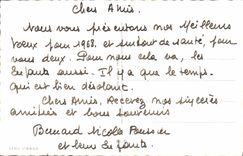 Chers Amis.
Nous vous présentons nos Meilleurs
Vœux pour 1968. et surtout de santé, pour
vous deux. Pour nous cela va, les
Enfants aussi. Il y a que le temps.
Qui est bien désolant.
Chers Amis, Recevez nos sincères
amitiés et bons souvenirs
Bernard Nicole
et leurs Enfants.